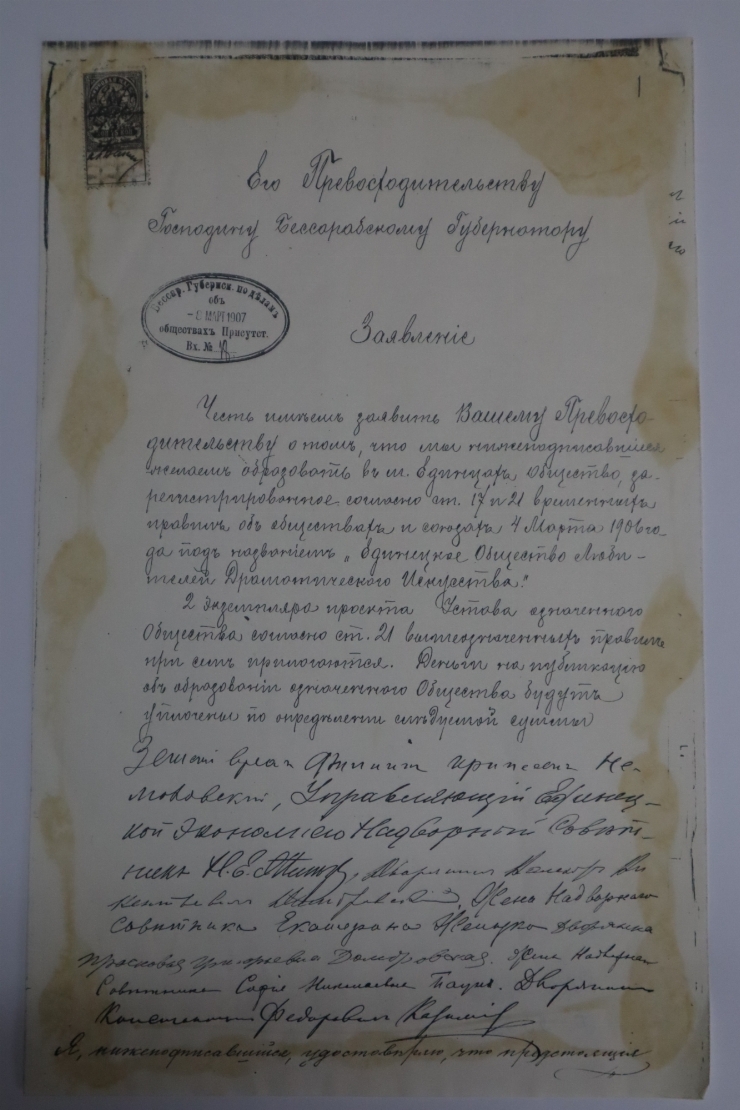 Его Превосходительству
Господину Бессарабскому Губернатору
Бессар. Губернск. по дѣламъ
объ
- 8 МАРТ 1907
обществахъ Присутст.
Вх. №
Заявленіе
Честь имѣемъ заявить Вашему Превосхо-
дительству о томъ, что мы нижеподписавшіеся
желаемъ образовать въ м. Единцахъ общество, за-
регистрированное согласно ст. 17 и 21 временныхъ
правилъ объ обществахъ и союзахъ 4 Марта 1906 го-
да подъ названіемъ „Единецкое Общество Люби-
телей Драматическаго Искуства."
2 экземпляра проекта Устава означеннаго
Общества согласно ст. 21 вышеозначенныхъ правилъ
при семъ прилагаются. Деньги на публикацію
объ образованіи означеннаго Общества будутъ
уплочены по опредѣленіи слѣдуемой суммы
Земскій врачъ
Управляющій Единец-
кой Экономіею Надворный Совѣт-
никъ Н. Е. Дворянинъ
Жена Надворнаго
Совѣтника Екатерина Дворянка
Прасковья Григорьевна Домбровская. Жена Надворнаго
Совѣтника Софія Николаевна Дворянинъ
Константинъ Федоровичъ
Я, нижеподписавшійся, удостовѣряю, что предстоящія